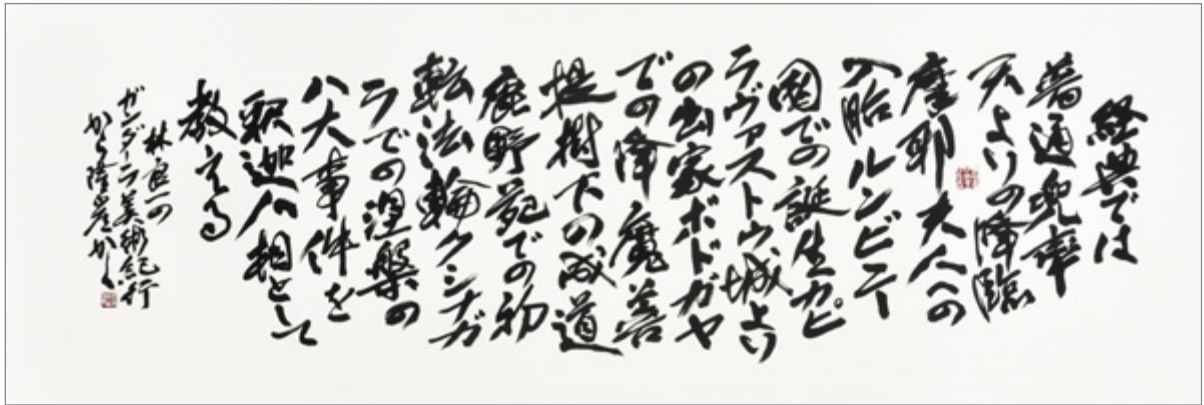 経典では
普通兜率
天よりの降臨
摩耶夫人への
入胎ルンビニー
園での誕生カピ
ラヴァストウ城より
の出家ボドガヤ
での降魔菩
提樹下の成道
鹿野苑での初
転法輪クシナガ
ラでの涅槃の
八大事件を
釈迦八相として
教える
林良一の
ガンダーラ美術紀行
から隆崖かく